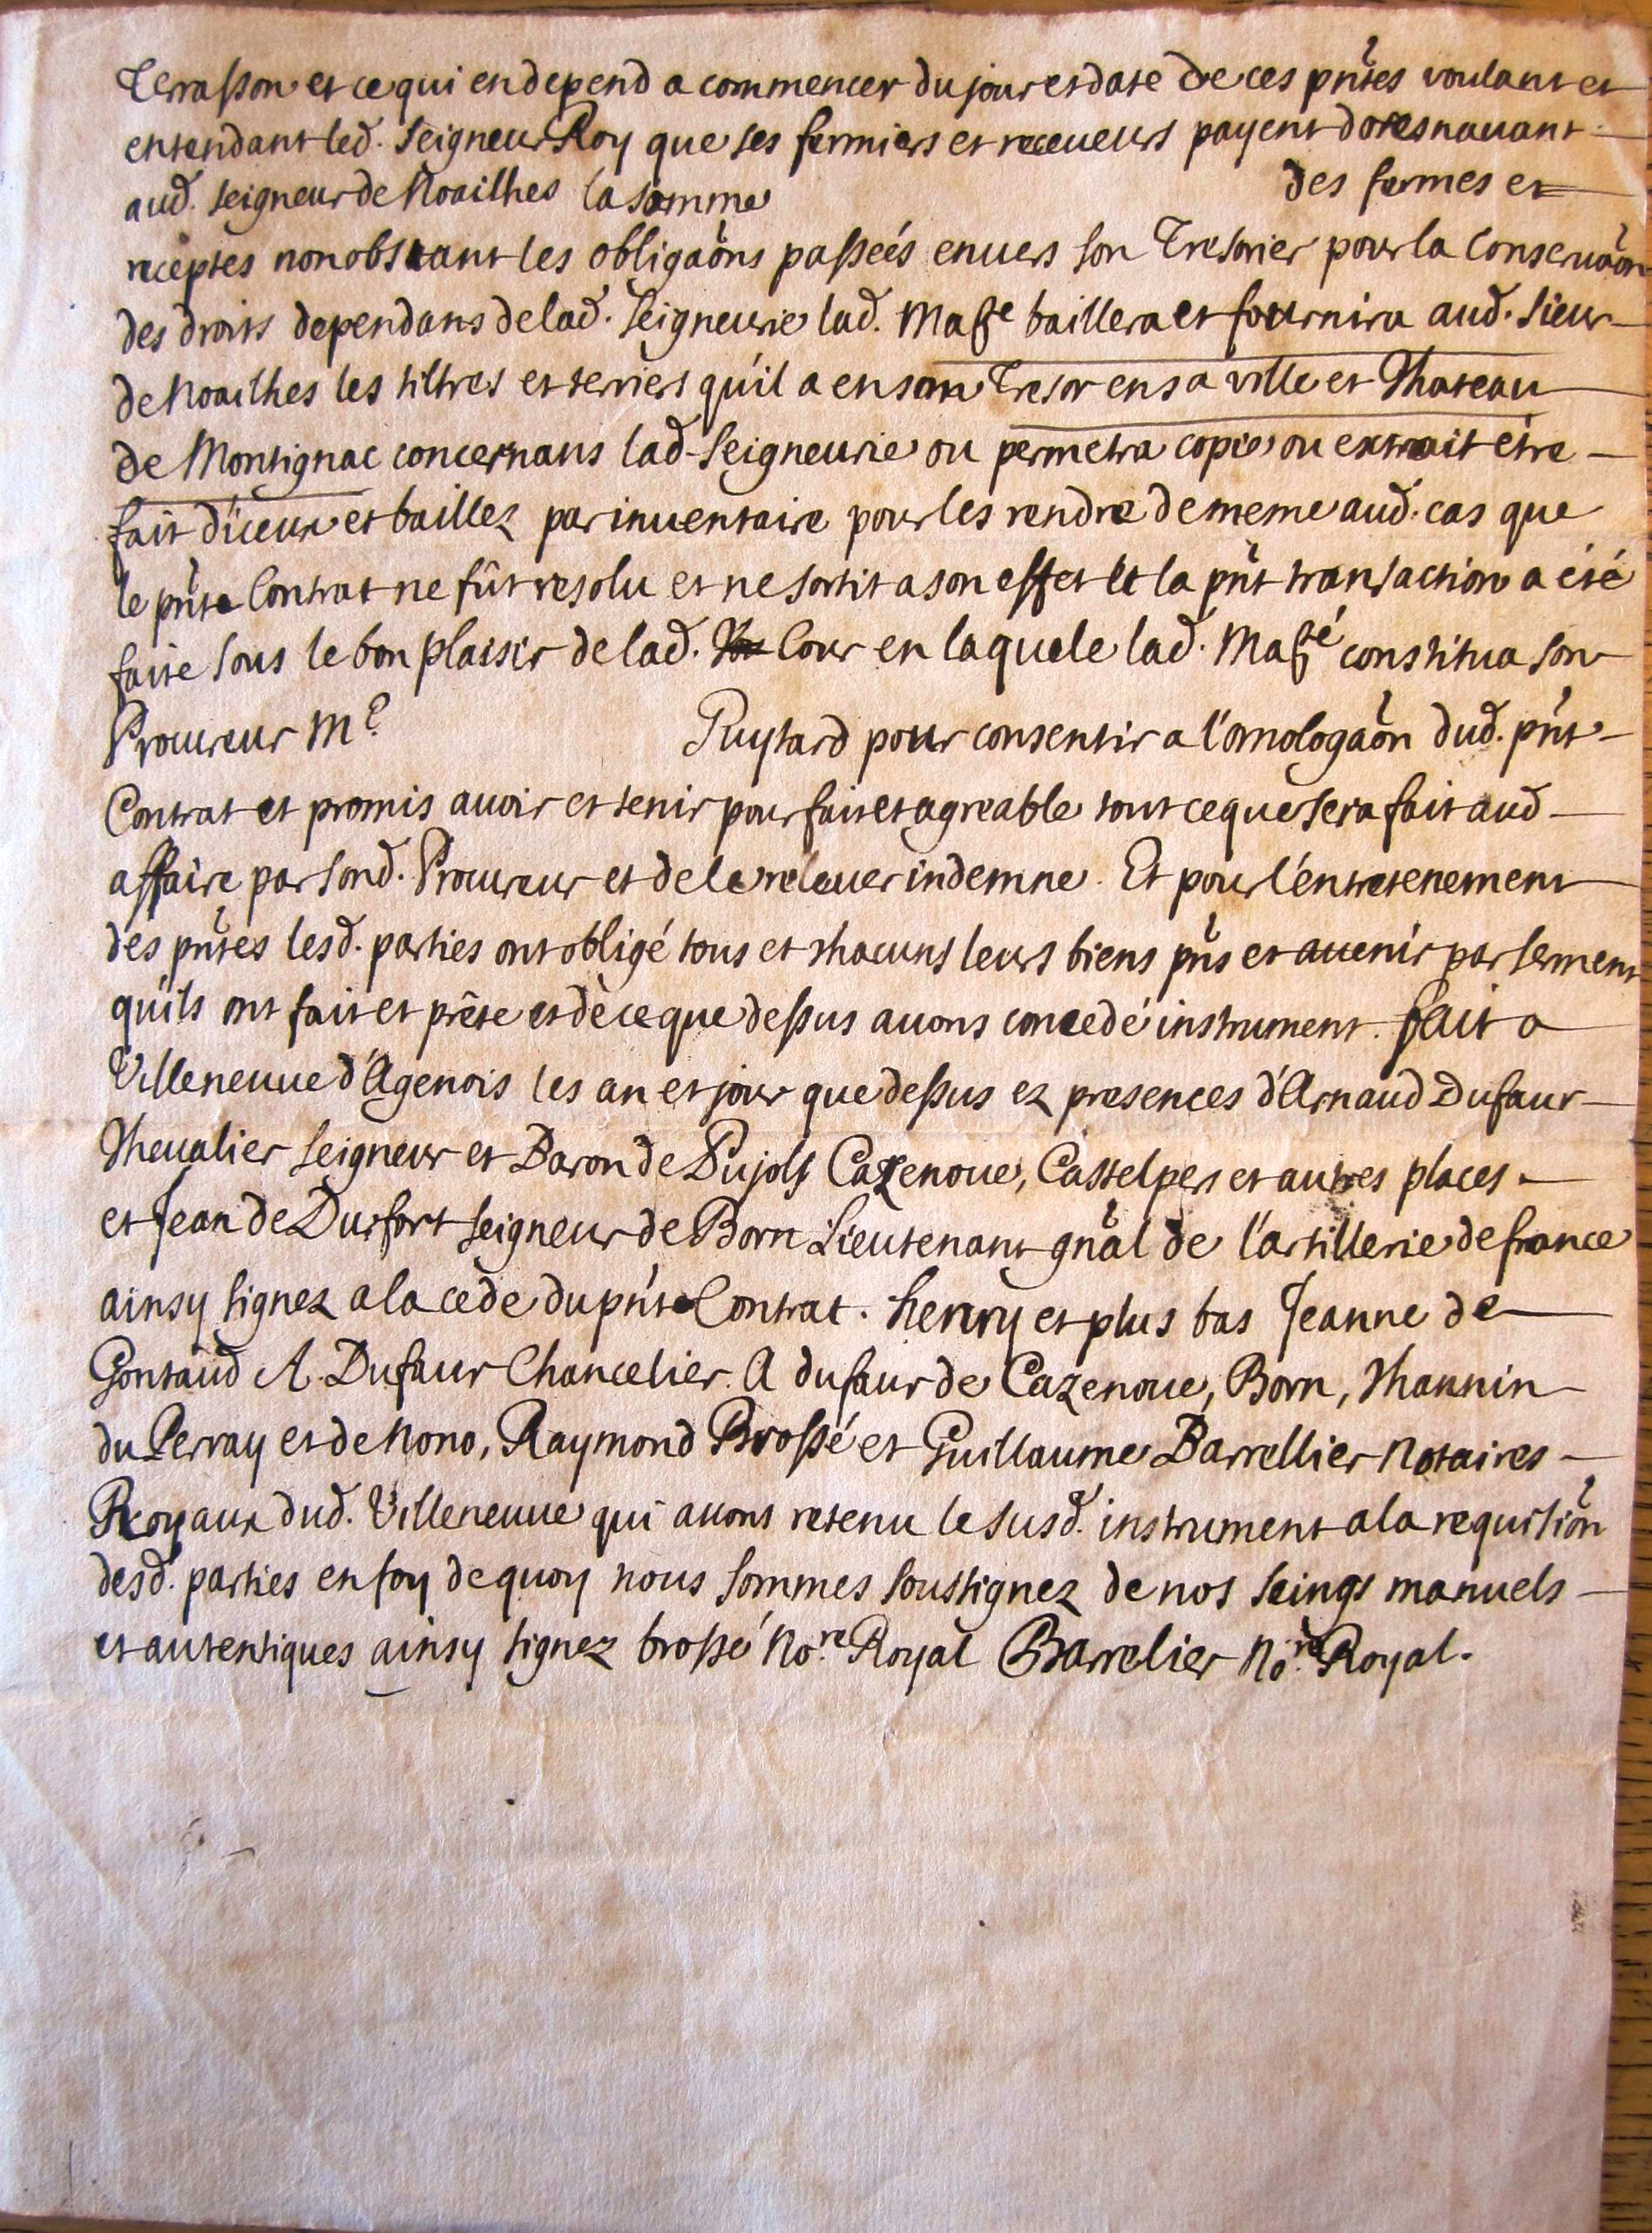 Terrasson et ce qui en depend a commencer du jour et date de ces pñtes voulant et
entendant led. Seigneur Roy que ses fermiers et receueurs payent doresnauant
aud. seigneur de Noailhes la somme des fermes et
receptes nonobstant les obligaõns passeés enuers son Tresorier pour la Conseruaõn
des droits dependans de lad. Seigneurie lad. Maj.te baillera et fournira aud. sieur
de Noailhes les tiltres et terriers qu'il a en son Tresor en sa ville et Chateau
de Montignac concernans lad Seigneurie ou permetra copie ou extrait étre
fait d'iceux et baillez par inuentaire pour les rendre de meme aud. cas que
le pñte Contrat ne fût resolu et ne sortit a son effet et la pñt transaction a été
faite sous le bon plaisir de lad. Cour en laquele lad. Maj.té constitua son
Procureur M.e Puytard pour consentir a l'omologaõn dud. pñt
Contrat et promis auoir et tenir pour fait et agreable tout ce que sera fait aud
affaire par sond. Procureur et de le releuer indemne. Et pour l'entretenement
des pñtes lesd. parties ont obligé tous et chacuns leurs biens pñs et auenir par serment
qu'ils ont fait et prête et de ce que dessus auons concedé instrument. fait a
Villeneuue d'Agenois les an et jour que dessus ez presences d'Arnaud Dufaur
Cheualier Seigneur et Baron de Pujols Cazenoue, Castelpers et autres places.
et Jean de Durfort seigneur de Born Lieutenant gnãl de l'artillerie de france
ainsy signez a la cede du pñte Contrat. henry et plus bas Jeanne de
Gontaud A. Dufaur Chancelier. A dufaur de Cazenoue, Born, Chaunin
du Perray et de Nono, Raymond Brossé et Guillaume Barrellier Notaires
Royaux dud. Villeneuue qui auons retenu le susd. instrument a la requisiõn
desd. parties en foy de quoy nous sommes soussignez de nos seings manuels
et autentiques ainsy signez brossé No.re Royal Barrelier No.re Royal.